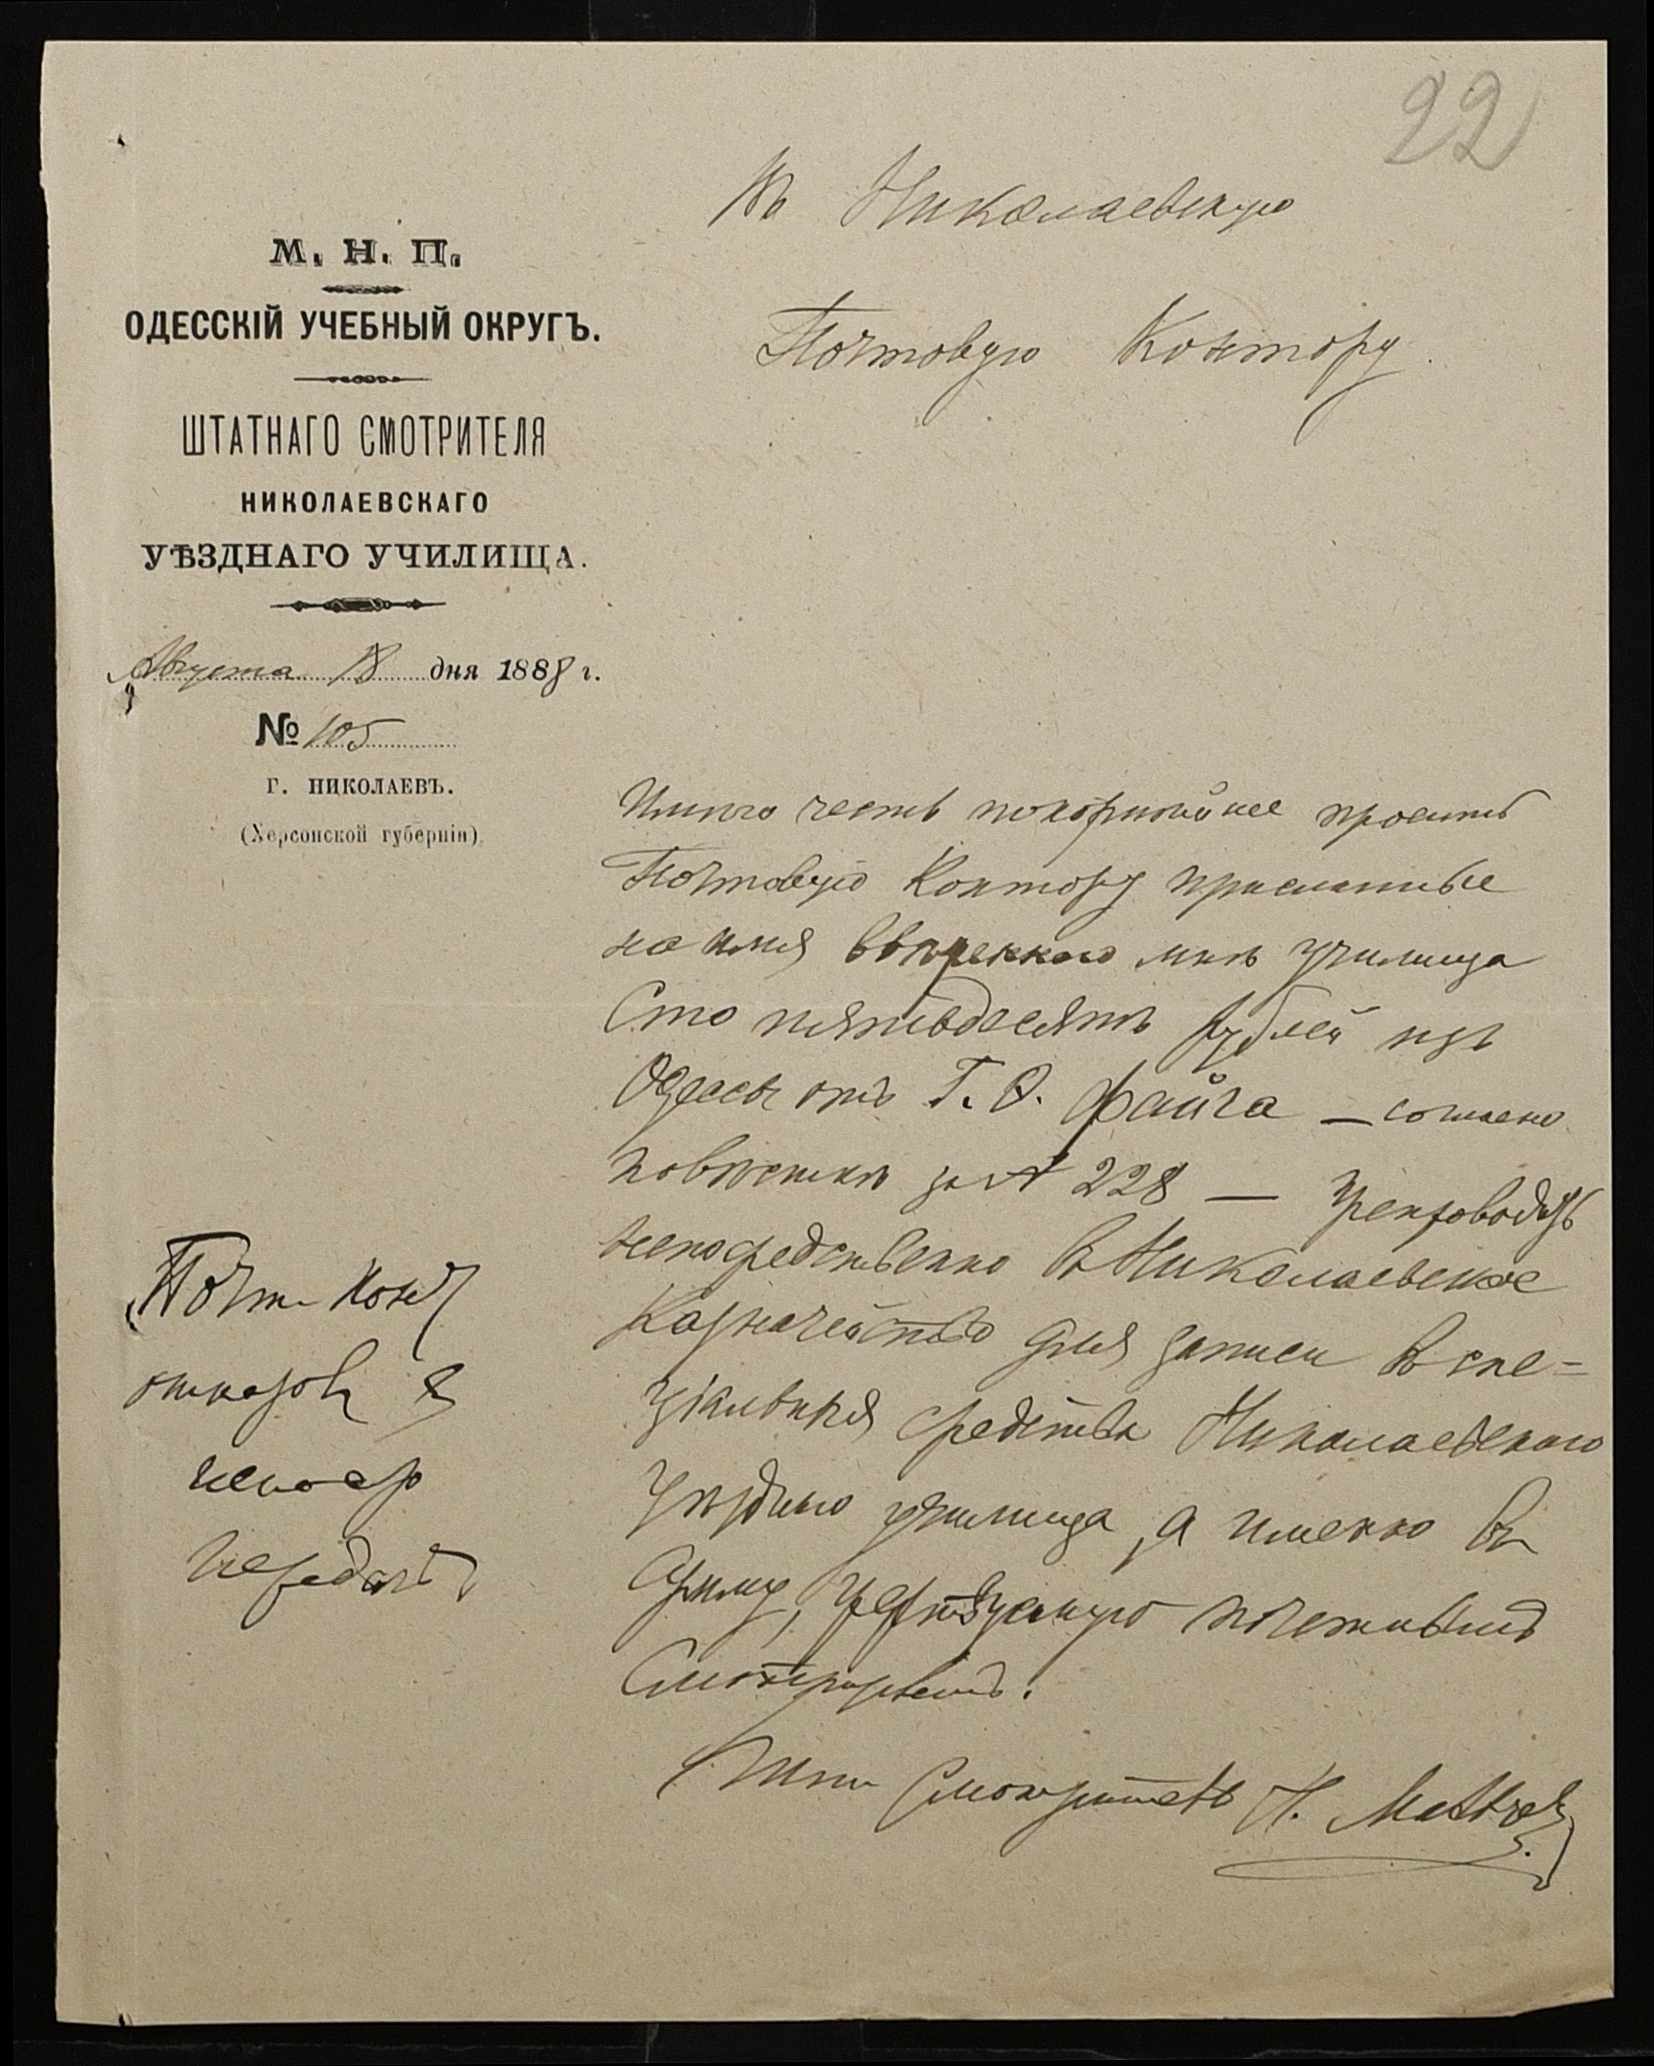 22
М. Н. П.
ОДЕССКІЙ УЧЕБНЫЙ ОКРУГЪ.
ШТАТНАГО СМОТРИТЕЛЯ
НИКОЛАЕВСКАГО
УѢЗДНАГО УЧИЛИЩА.
Августа 18 дня 1888 г.
№ 105
Г. НИКОЛАЕВЪ.
(Херсонской губерніи)
Въ Николаевскую
Почтовую Контору.
Имѣю честь покорнѣйше просить
Почтовую Контору присланные
на имя ввѣреннаго мнѣ училища
Сто пятьдесятъ рублей изъ
Одессы отъ Г. О. Файга — согласно
повѣстки за № 228 — препроводить
непосредственно въ Николаевское
Казначейство для записи въ спе=
ціальныя средства Николаевскаго
Уѣзднаго училища, а именно въ
сумму, жертвуемую почетнымъ
Смотрителемъ.
Шт. Смотритель Н.
Почт. Конт
отказ
непоср
передать